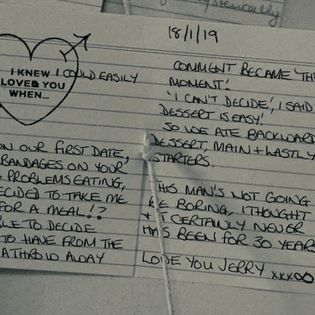 18/1/19
I KNEW I COULD EASILY
LOVED YOU
WHEN...
ON OUR FIRST DATE,
BANDAGES ON YOUR
PROBLEMS EATING,
TO TAKE ME
FOR A MEAL!?
TO DECIDE
TO HAVE FROM THE
AWAY
COMMENT BECAME
MOMENT'.
'I CAN'T DECIDE', I SAID
DESSERT IS EASY!'
SO WE ATE BACKWARD
DESSERT, MAIN + LASTLY
STARTERS.
THIS MAN'S NOT GOING
BE BORING, I THOUGHT
+ IT CERTAINLY NEVER
HAS BEEN FOR 30 YEARS
LOVE YOU JERRY xxx∞